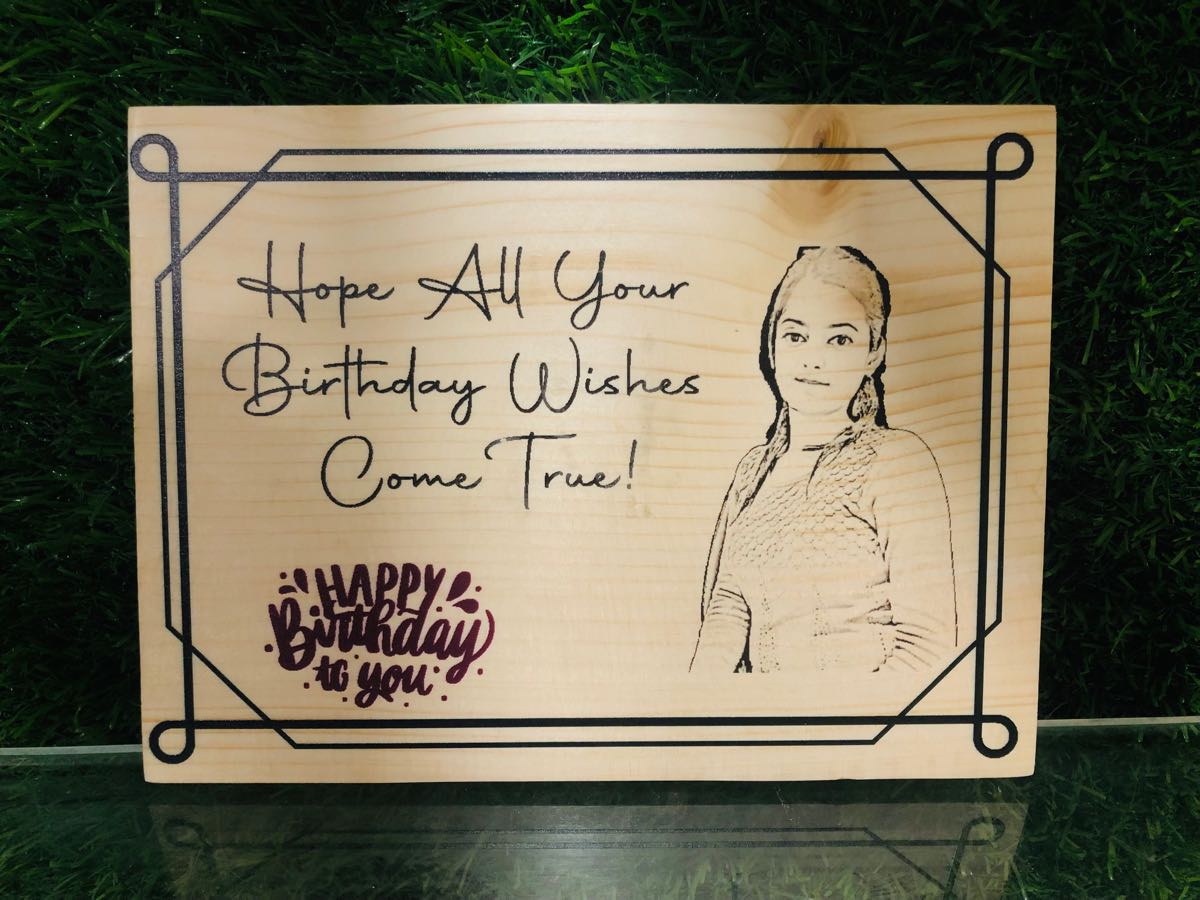 Hope All Your
Birthday Wishes
Come True!
HAPPY
Birthday
to you